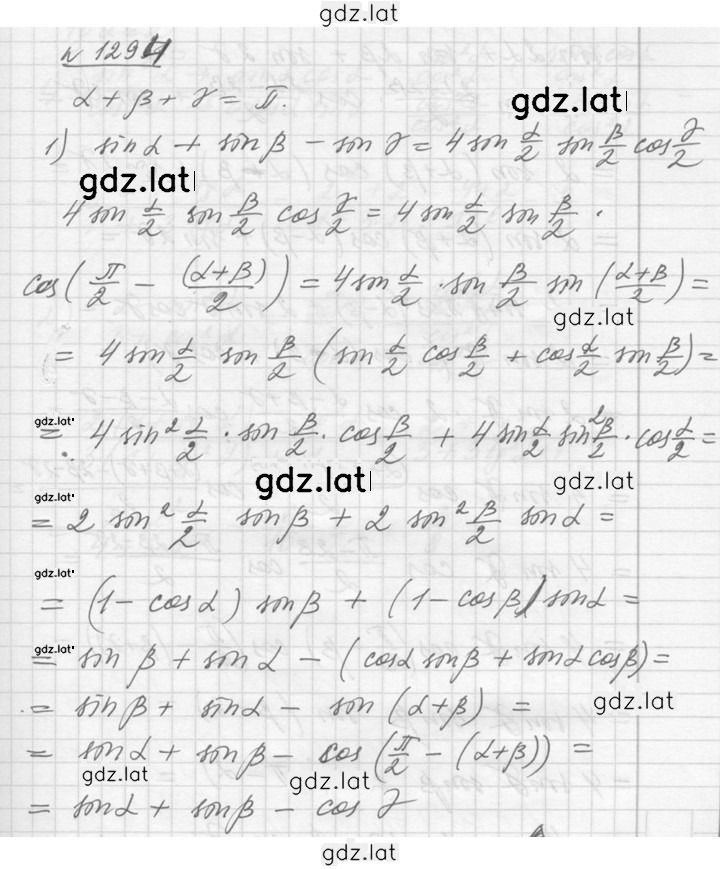 gdz.lat
№ 1294
α + β + γ = π.
gdz.lat
1) sinα + sinβ - sinγ = 4 sin α/2 sin β/2 cos γ/2
gdz.lat
4 sin α/2 sin β/2 cos γ/2 = 4 sin α/2 sin β/2 ·
cos(π/2 - (α+β)/2) = 4 sin α/2 · sin β/2 sin (α+β/2) =
gdz.lat
= 4 sin α/2 sin β/2 (sin α/2 cos β/2 + cos α/2 sin β/2) =
gdz.lat
= 4 sin² α/2 · sin β/2 · cos β/2 + 4 sin α/2 sin² β/2 · cos α/2 =
gdz.lat gdz.lat
gdz.lat
= 2 sin² α/2 sinβ + 2 sin² β/2 sinα =
gdz.lat
= (1 - cosα) sinβ + (1 - cosβ) sinα =
gdz.lat
= sinβ + sinα - (cosα sinβ + sinα cosβ) =
gdz.lat
= sinβ + sinα - sin (α+β) =
= sinα + sinβ - cos (π/2 - (α+β)) =
gdz.lat gdz.lat
= sinα + sinβ - cos γ
gdz.lat